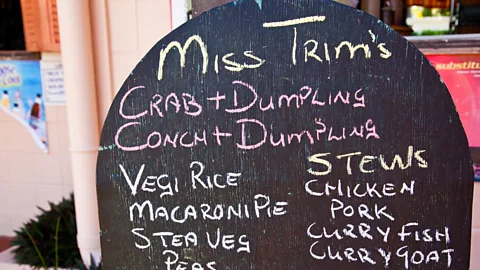 Miss Trim's
CRAB + DUMPLING
CONCH + DUMPLING
VEGI RICE
MACARONI PIE
STEA VEG
PEAS
STEWS
CHICKEN
PORK
CURRY FISH
CURRY GOAT
substitu